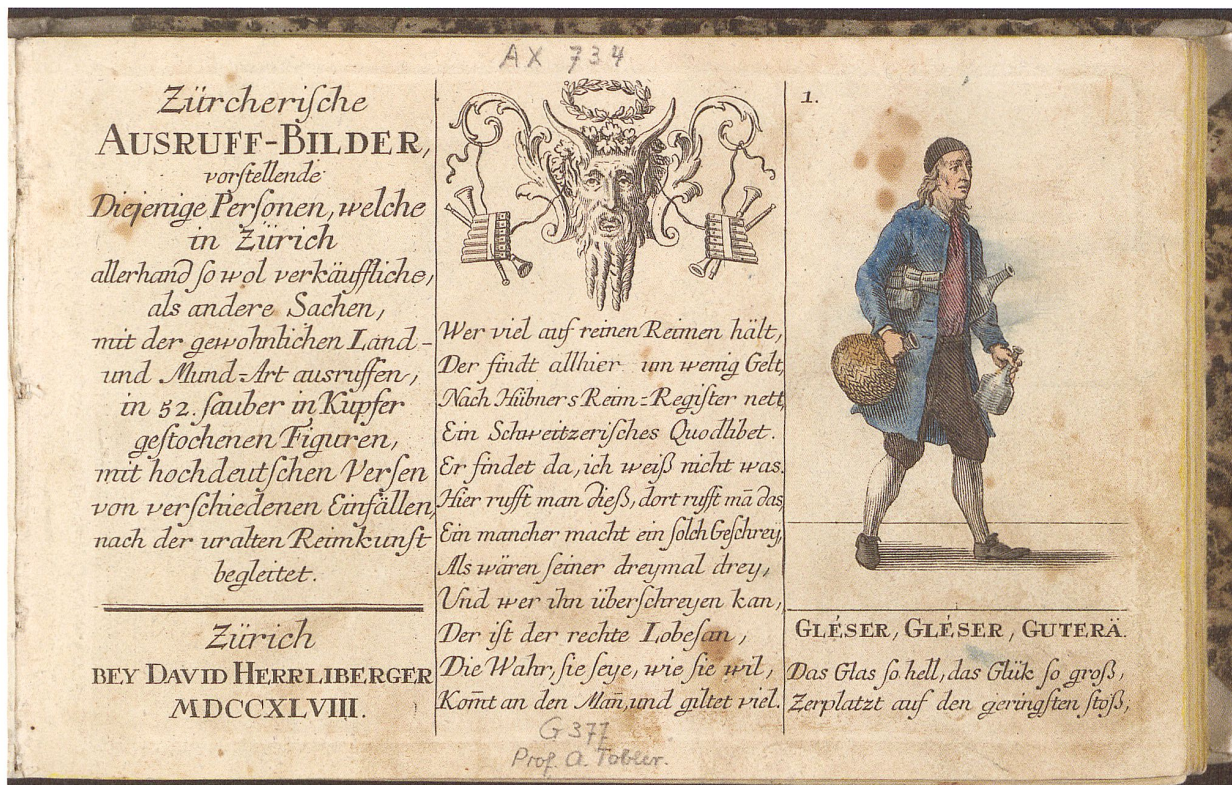 AX 734
Zürcherische
AUSRUFF-BILDER,
vorstellende
Diejenige Personen, welche
in Zürich
allerhand so wol verkäuffliche,
als andere Sachen,
mit der gewohnlichen Land-
und Mund-Art ausruffen,
in 52. sauber in Kupfer
gestochenen Figuren,
mit hochdeutschen Versen
von verschiedenen Einfällen,
nach der uralten Reimkunst
begleitet.
Zürich
BEY DAVID HERRLIBERGER
MDCCXLVIII.
Wer viel auf reinen Reimen hält,
Der findt allhier um wenig Gelt,
Nach Hübners Reim-Register nett,
Ein Schweitzerisches Quodlibet.
Er findet da, ich weiß nicht was.
Hier rufft man dieß, dort rufft mā das,
Ein mancher macht ein solch Geschrey,
Als wären seiner dreymal drey,
Und wer ihn überschreyen kan,
Der ist der rechte Lobesan,
Die Wahr, sie seye, wie sie wil,
Kom̄t an den Man̄, und giltet viel.
G 377
Prof. A. Tobler.
1.
GLÉSER, GLÉSER, GUTERÄ.
Das Glas so hell, das Glük so groß,
Zerplatzt auf den geringsten stoß,